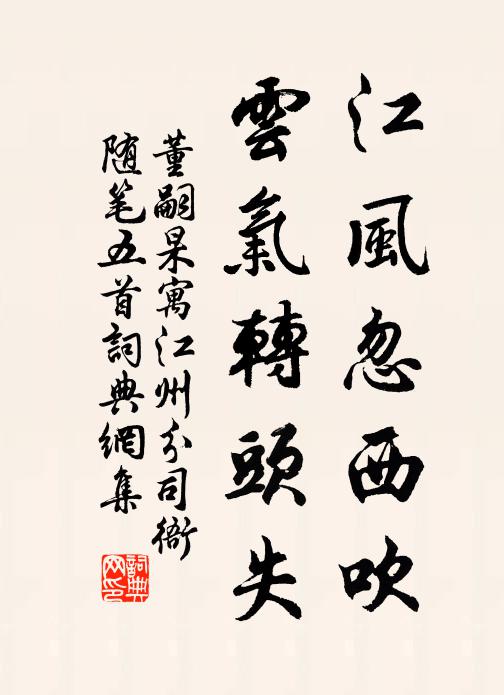 江風忽西吹
雲氣轉頭失
董嗣杲寓江州分司衙
随笔五首詞典網集
詞典网印